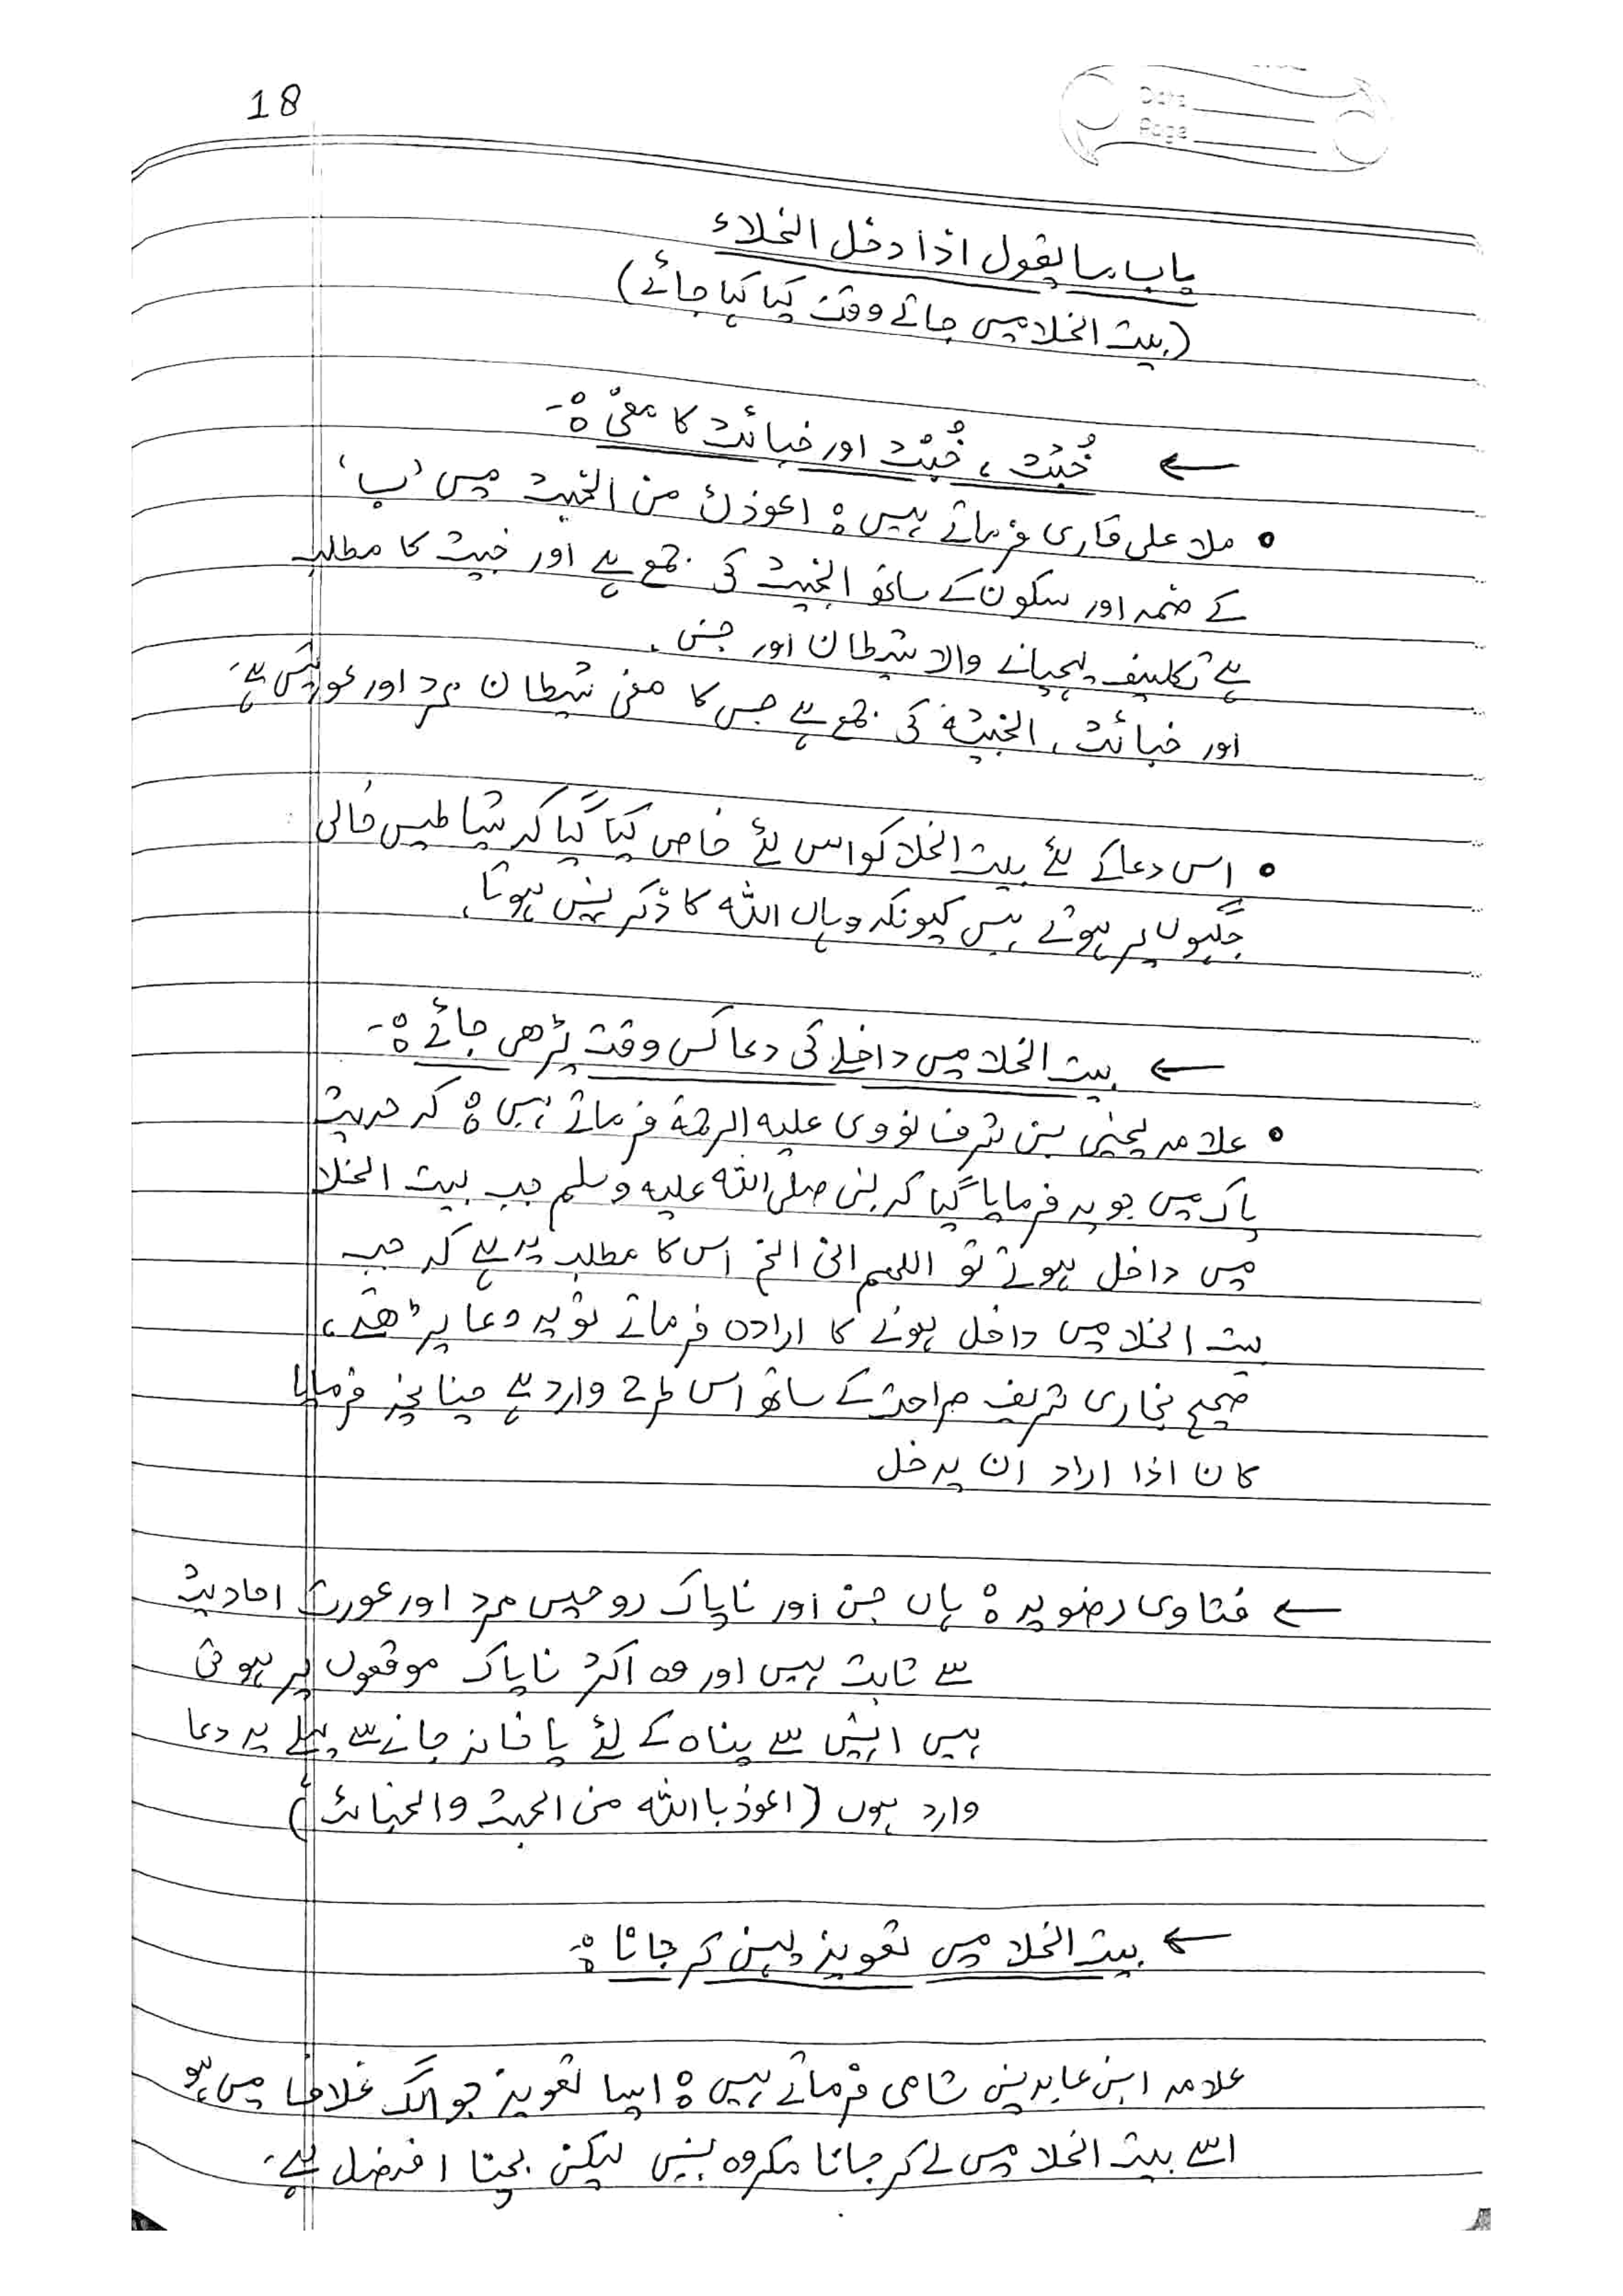 18
Date
Page
باب ما یقول اذا دخل الخلاء
(بیت الخلا میں جاتے وقت کیا کہا جائے)
← خُبُث ، خُبْث اور خبائث کا معنیٰ :-
• ملا علی قاری فرماتے ہیں : اعوذبک من الخبث میں 'ب'
کے ضمہ اور سکون کے ساتھ الخبیث کی جمع ہے اور خبیث کا مطلب
ہے تکلیف پہچانے والا شیطان اور جن ۔
اور خبائث ، الخبیثۃ کی جمع ہے جس کا معنی شیطان مرد اور عورتیں ہے۔
• اس دعا کے لئے بیت الخلا کو اس لئے خاص کیا گیا کہ شیاطیں خالی
جگہوں پر ہوتے ہیں کیونکہ وہاں اللہ کا ذکر نہیں ہوتا۔
← بیت الخلا میں داخلے کی دعا کس وقت پڑھی جائے :-
• علامہ یحیٰی بن شرف نووی علیہ الرحمۃ فرماتے ہیں : کہ حدیث
پاک میں جو یہ فرمایا گیا کہ نبی صلی اللہ علیہ وسلم جب بیت الخلا
میں داخل ہوتے تو اللہم انی الخ اس کا مطلب یہ ہے کہ جب
بیت الخلا میں داخل ہونے کا ارادہ فرماتے تو یہ دعا پڑھتے ،
صحیح بخاری شریف صراحت کے ساتھ اس طرح وارد ہے چنانچہ فرمایا
کان اذا اراد ان یدخل
← فتاوی رضویہ : ہاں جن اور ناپاک روحیں مرد اور عورت احادیث
سے ثابت ہیں اور وہ اکثر ناپاک موقعوں پر ہوتی
ہیں انہیں سے پناہ کے لئے پاخانہ جانے سے پہلے یہ دعا
وارد ہوں (اعوذ باللہ من الخبث والخبائث)
← بیت الخلا میں تعویذ پہن کر جانا :-
علامہ ابن عابدین شامی فرماتے ہیں : ایسا تعویذ جو الگ غلاف میں ہو
اسے بیت الخلا میں لے کر جانا مکروہ نہیں لیکن بچنا افضل ہے۔